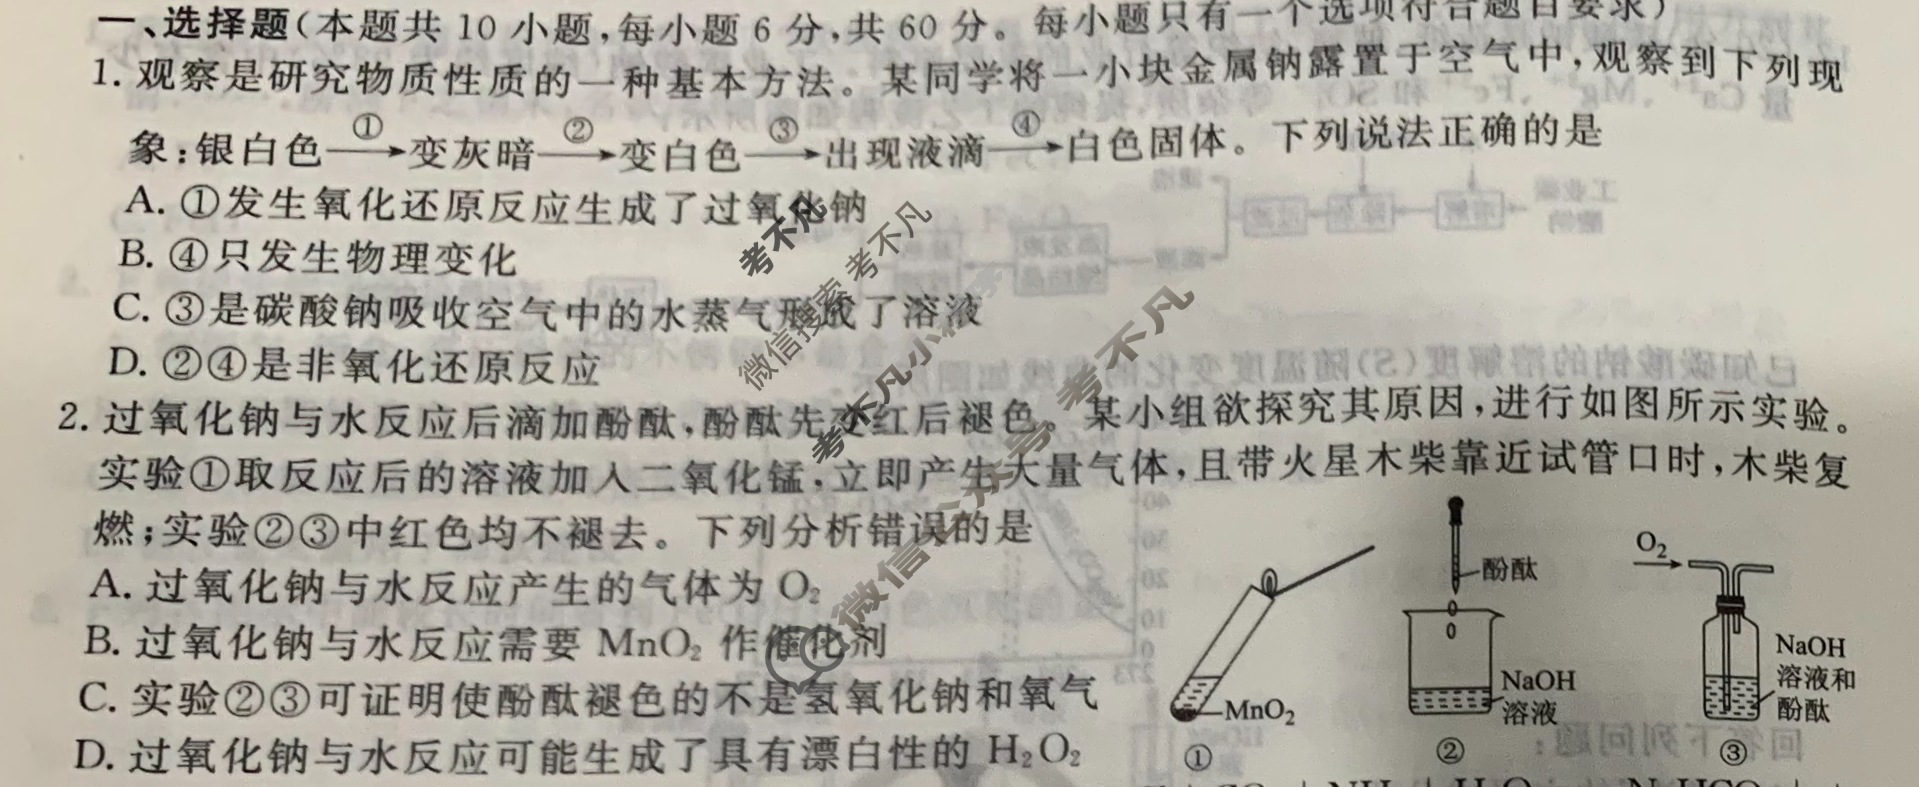 一、选择题(本题共 10 小题,每小题 6 分,共 60 分。每小题只有一个选项符合题目要求)
1. 观察是研究物质性质的一种基本方法。某同学将一小块金属钠露置于空气中,观察到下列现
象:银白色①→变灰暗②→变白色③→出现液滴④→白色固体。下列说法正确的是
A. ①发生氧化还原反应生成了过氧化钠
B. ④只发生物理变化
C. ③是碳酸钠吸收空气中的水蒸气形成了溶液
D. ②④是非氧化还原反应
2. 过氧化钠与水反应后滴加酚酞,酚酞先变红后褪色。某小组欲探究其原因,进行如图所示实验。
实验①取反应后的溶液加入二氧化锰,立即产生大量气体,且带火星木柴靠近试管口时,木柴复
燃;实验②③中红色均不褪去。下列分析错误的是
A. 过氧化钠与水反应产生的气体为 O₂
B. 过氧化钠与水反应需要 MnO₂ 作催化剂
C. 实验②③可证明使酚酞褪色的不是氢氧化钠和氧气
D. 过氧化钠与水反应可能生成了具有漂白性的 H₂O₂
MnO₂
①
酚酞
NaOH
溶液
②
O₂
NaOH
溶液和
酚酞
③
考不凡
微信搜索 考不凡
考不凡小
微信公众号 考不凡